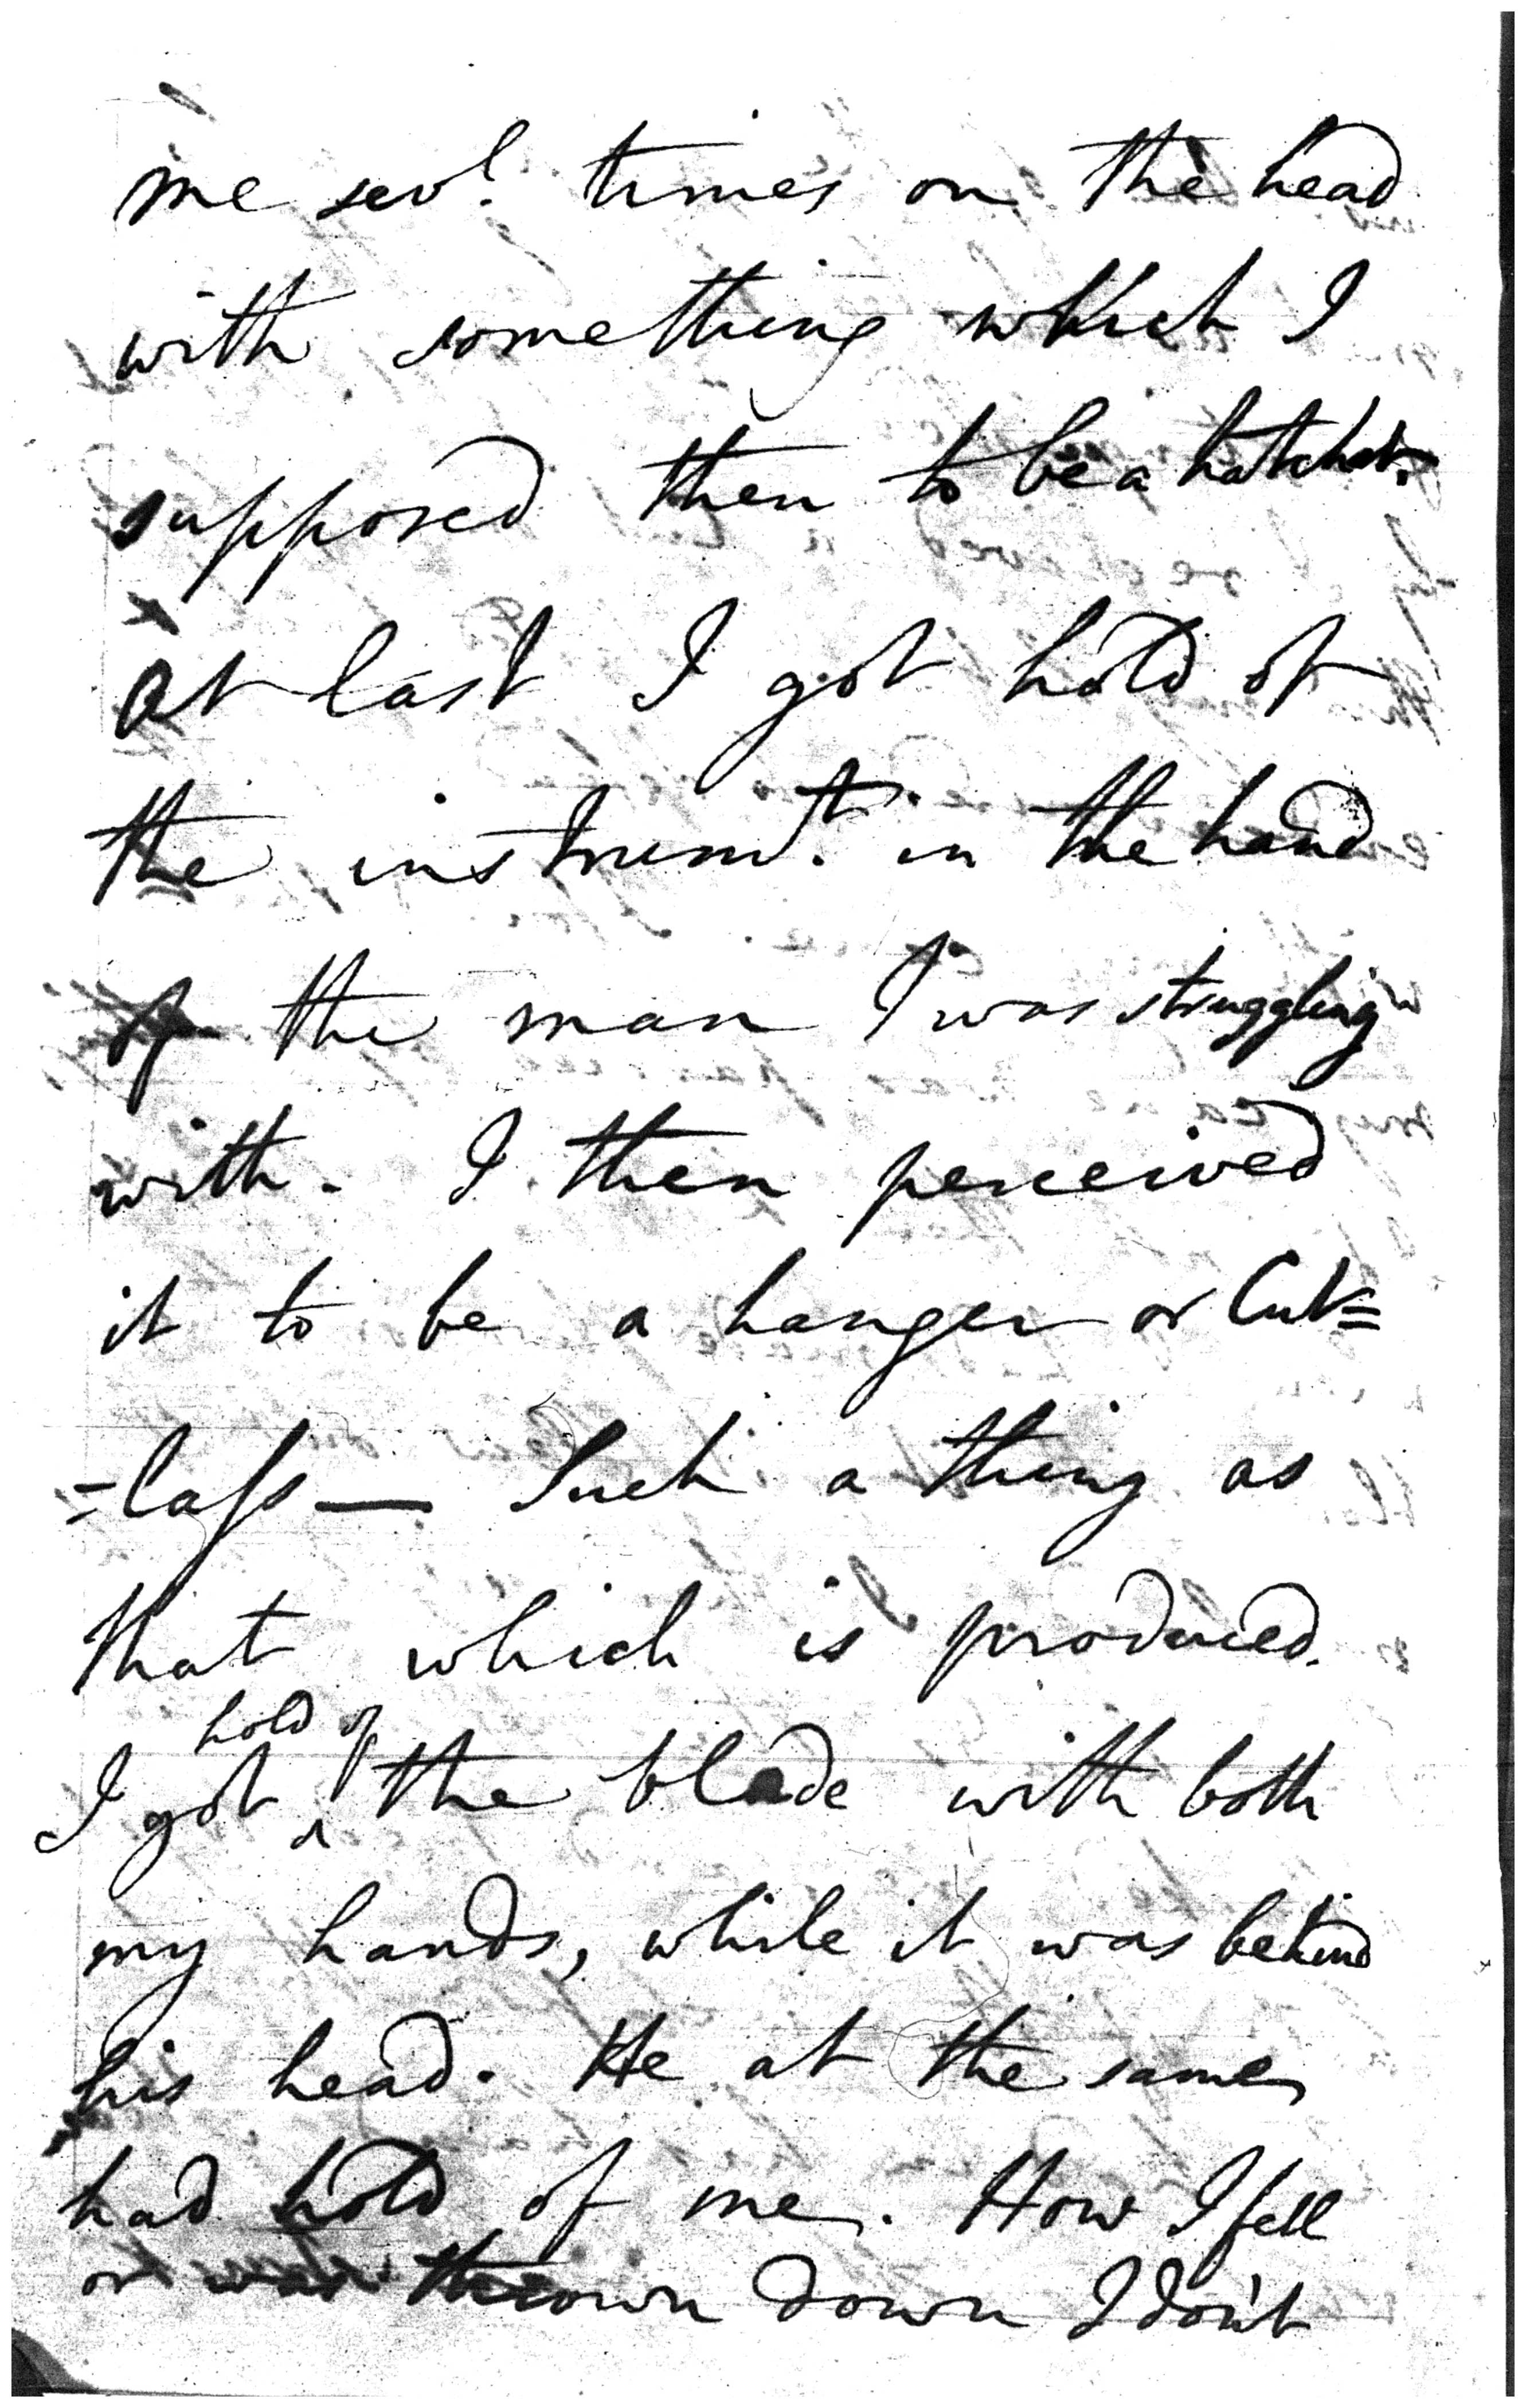 me sevl. times on the head
with something which I
supposed then to be a hatchet.
At last I got hold of
the instrumt. in the hand
of the man I was struggling
with. I then perceived
it to be a hanger or Cut=
=lass — Such a thing as
that which is produced.
hold of
I got ^ the blade with both
my hands, while it was behind
his head. He at the same
had hold of me. How I fell
or was thrown down I don't